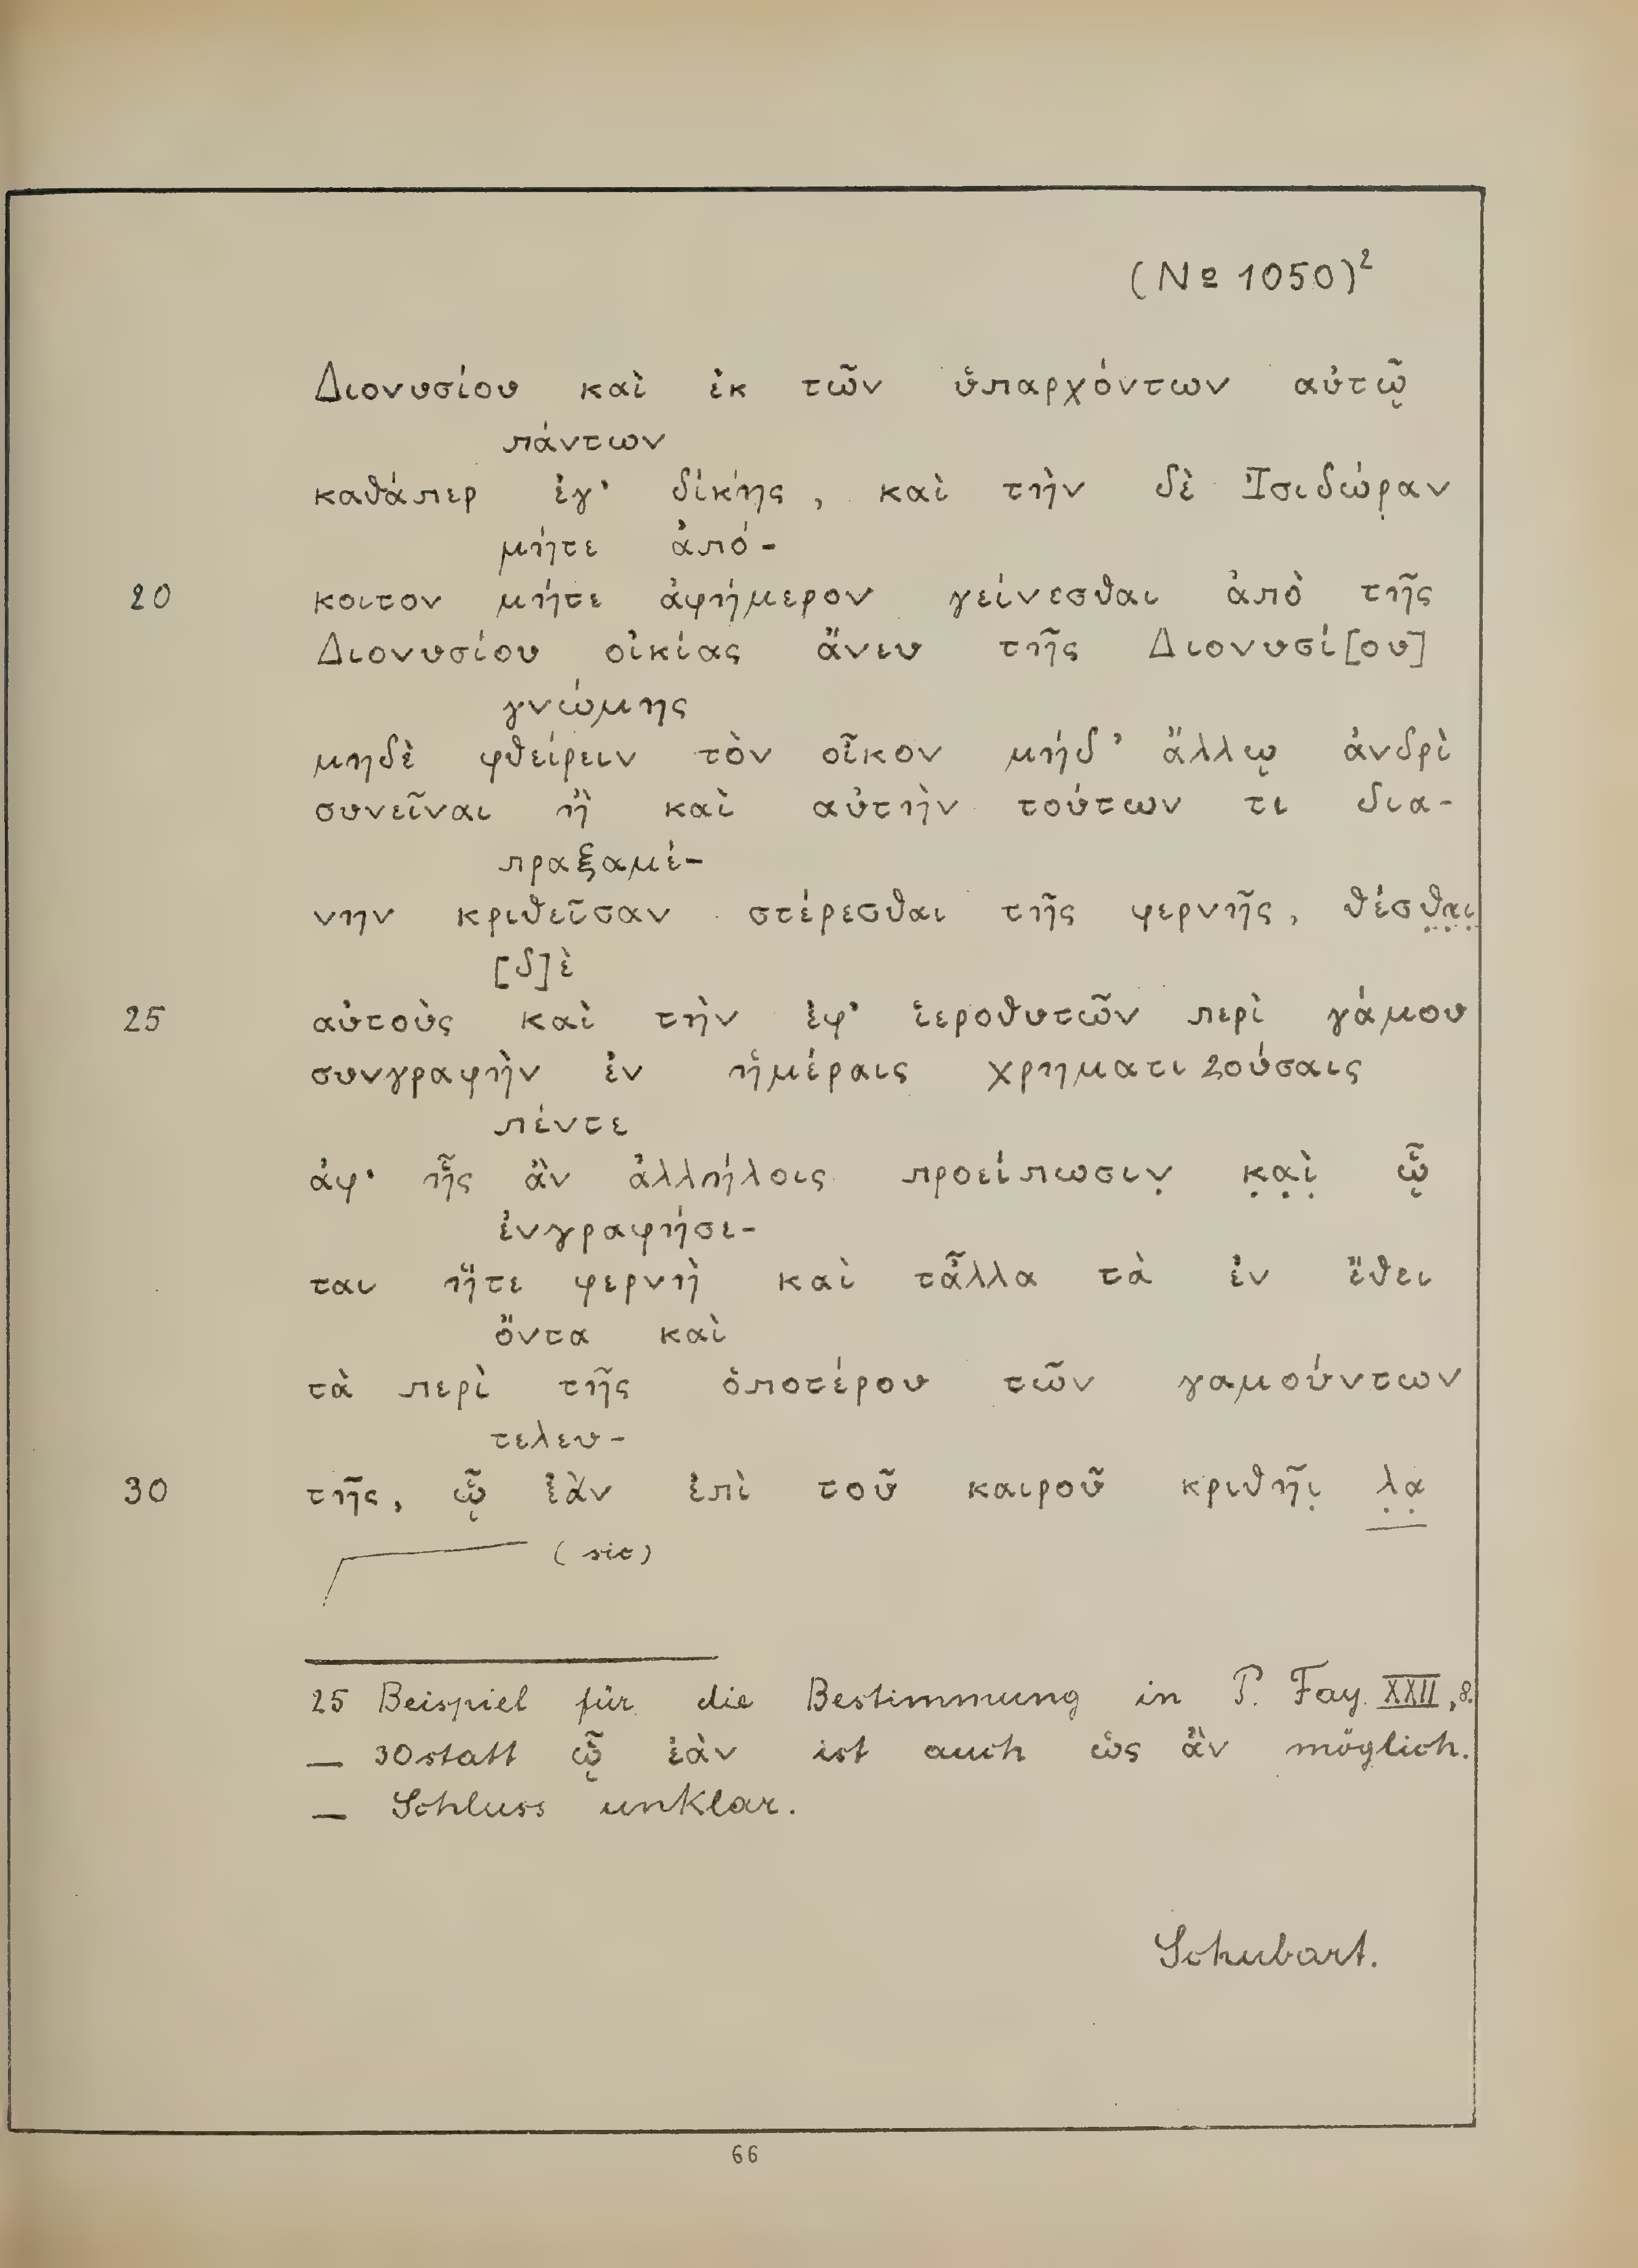 (No 1050)²
Διονυσίου καὶ ἐκ τῶν ὑπαρχόντων αὐτῷ
πάντων
καθάπερ ἐγ' δίκης, καὶ τὴν δὲ Ἰσιδώρ̣αν
μήτε ἀπό-
20 κοιτον μήτε ἀφήμερον γείνεσθαι ἀπὸ τῆς
Διονυσίου οἰκίας ἄνευ τῆς Διονυσί[ου]
γνώμης
μηδὲ φθείρειν τὸν οἶκον μήδ' ἄλλῳ ἀνδρὶ
συνεῖναι ἢ καὶ αὐτὴν τούτων τι δια-
πραξαμέ-
νην κριθεῖσαν στέρεσθαι τῆς φερνῆς, θέσθ̣α̣ι̣
[δ]ὲ
25 αὐτοὺς καὶ τὴν ἐφ' ἱεροθυτῶν περὶ γάμου
συνγραφὴν ἐν ἡμέραις χρηματιζούσαις
πέντε
ἀφ' ἧς ἂν ἀλλήλοις προείπωσιν̣ κ̣α̣ὶ̣ ᾧ
ἐνγραφήσε-
ται ἥτε φερνὴ καὶ τἆλλα τὰ ἐν ἔθει
ὄντα καὶ
τὰ περὶ τῆς ὁποτέρου τῶν γαμούντων
τελευ-
30 τῆς, ᾧ ἐὰν ἐπὶ τοῦ καιροῦ κριθῆι̣ λ̣α̣
(sic)
25 Beispiel für die Bestimmung in P. Fay. XXII, 8.
— 30 statt ᾧ ἐὰν ist auch ὡς ἂν möglich.
— Schluss unklar.
Schubart.
66